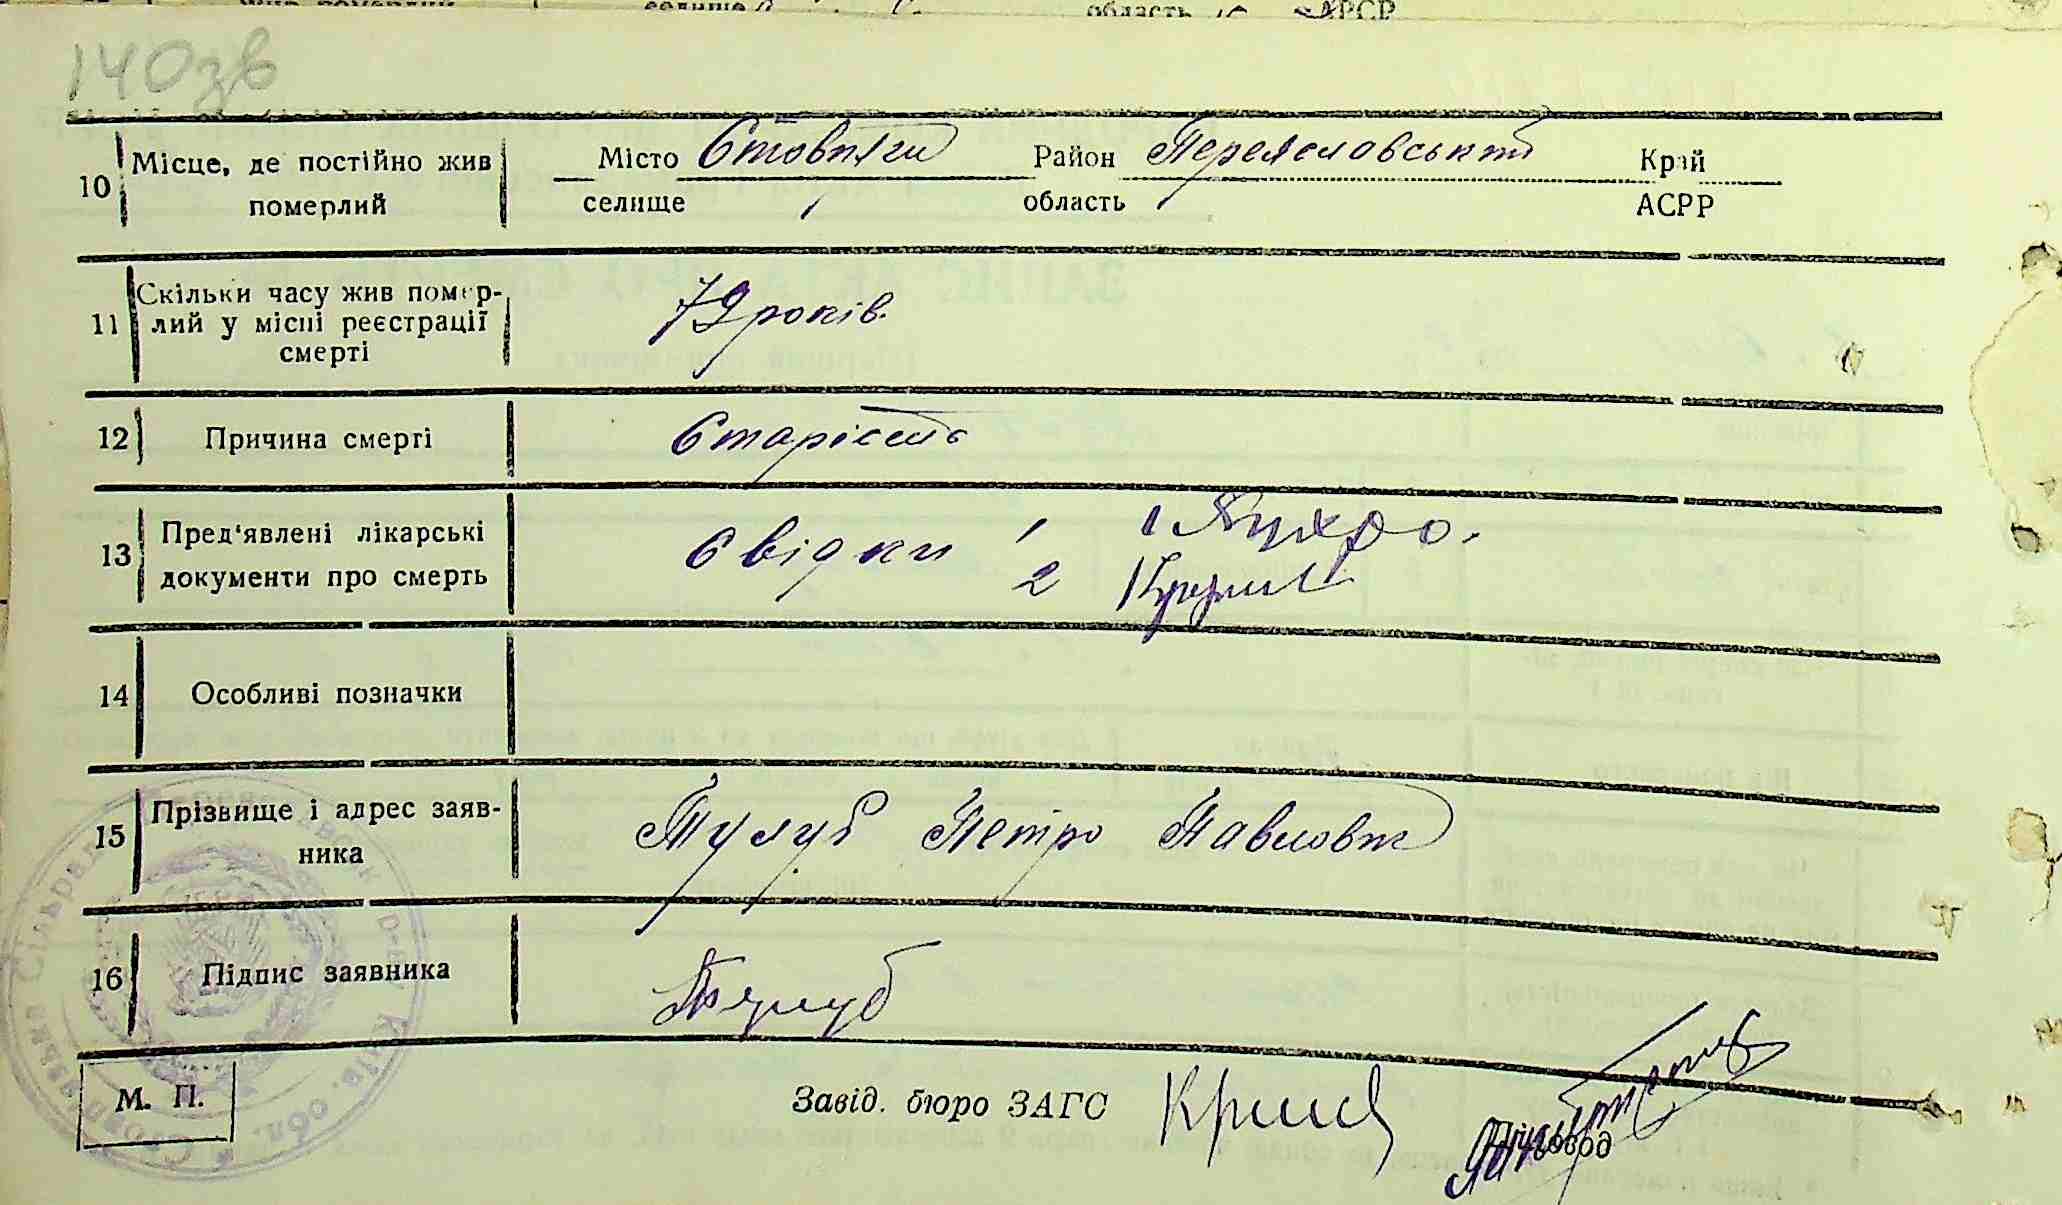 140зв
10 Місце, де постійно жив померлий Місто селище Стовпяги Район область Переяславський Край АСРР
11 Скільки часу жив померлий у місці реєстрації смерті 79 років.
12 Причина смерті Старість
13 Пред'явлені лікарські документи про смерть Свідки 1
2
14 Особливі позначки
15 Прізвище і адрес заявника Тулуб Петро Павлович
16 Підпис заявника Тулуб
М. П.
Завід. бюро ЗАГС
Діловод